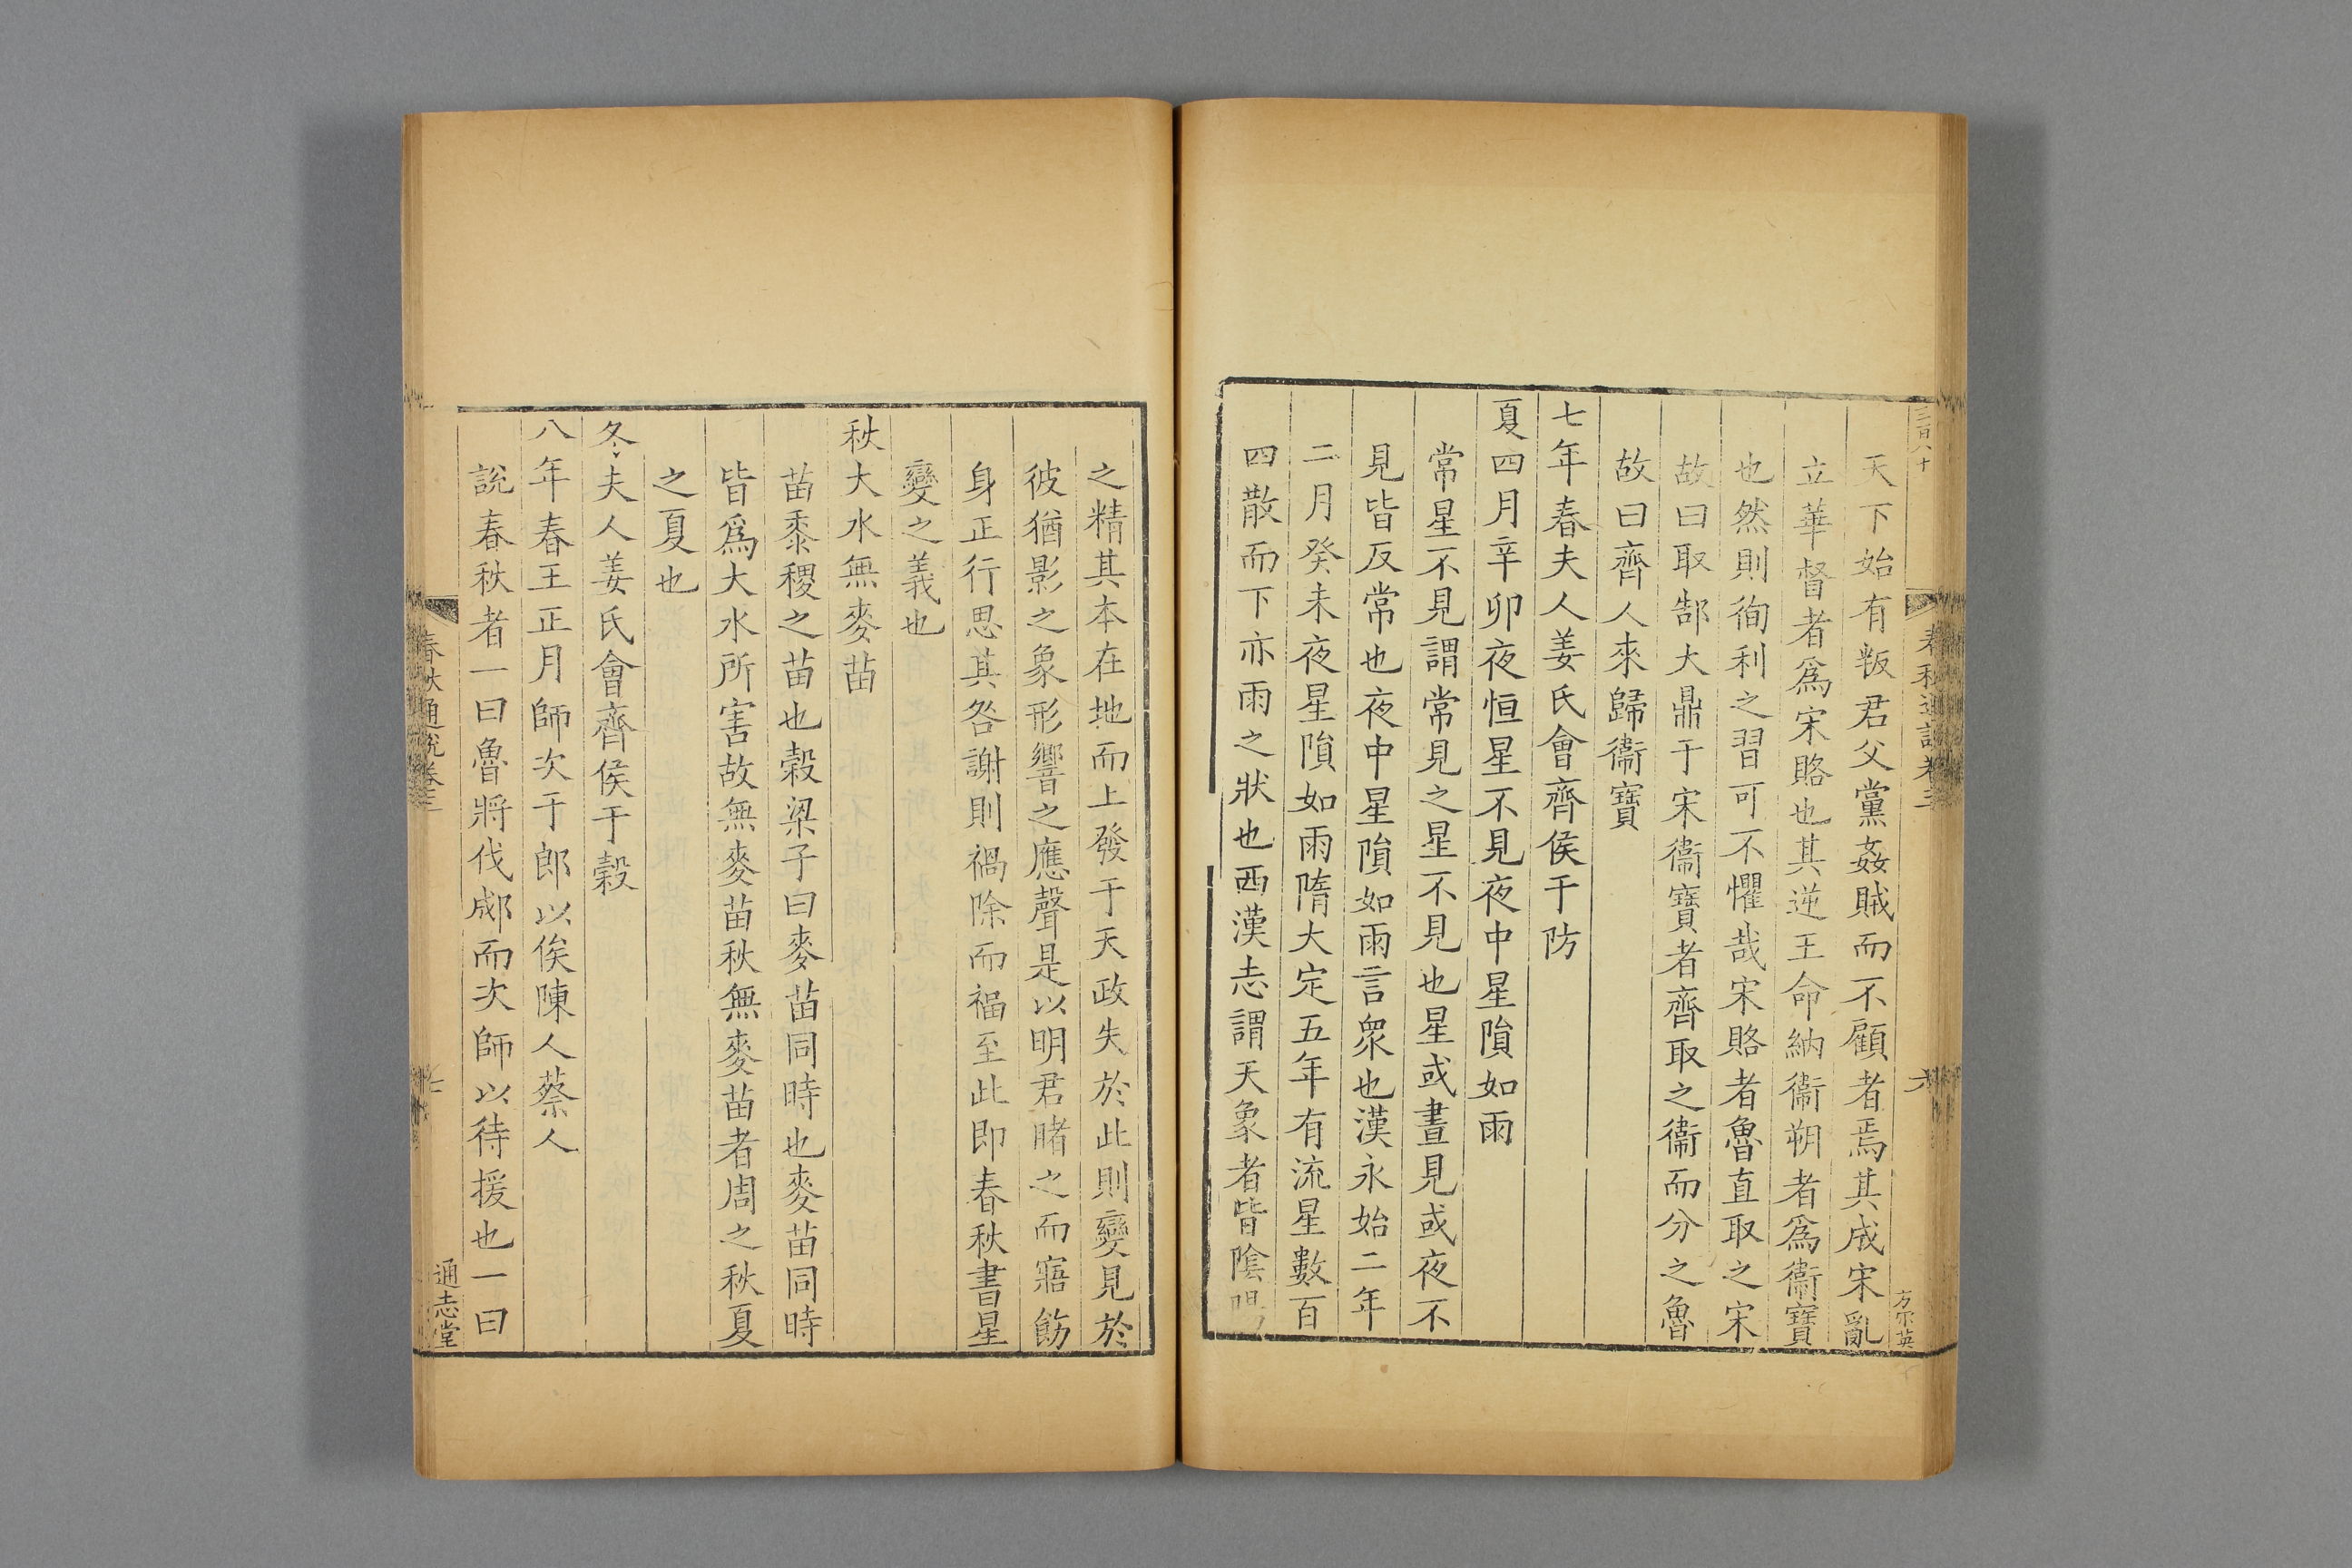 三百八十
春秋通說卷三
六
方宗英
天下始有叛君父黨姦賊而不顧者焉其成宋亂
立華督者爲宋賂也其逆王命納衞朔者爲衞寶
也然則徇利之習可不懼哉宋賂者魯直取之宋
故曰取郜大鼎于宋衞寶者齊取之衞而分之魯
故曰齊人來歸衞寶
七年春夫人姜氏會齊侯于防
夏四月辛卯夜恒星不見夜中星隕如雨
常星不見謂常見之星不見也星或晝見或夜不
見皆反常也夜中星隕如雨言衆也漢永始二年
二月癸未夜星隕如雨隋大定五年有流星數百
四散而下亦雨之狀也西漢志謂天象者皆陰陽
之精其本在地而上發于天政失於此則變見於
彼猶影之象形響之應聲是以明君睹之而寤飭
身正行思其咎謝則禍除而福至此即春秋書星
變之義也
秋大水無麥苗
苗黍稷之苗也穀梁子曰麥苗同時也麥苗同時
皆爲大水所害故無麥苗秋無麥苗者周之秋夏
之夏也
冬夫人姜氏會齊侯于穀
八年春王正月師次于郎以俟陳人蔡人
說春秋者一曰魯將伐郕而次師以待援也一曰
春秋通說卷三
七
通志堂